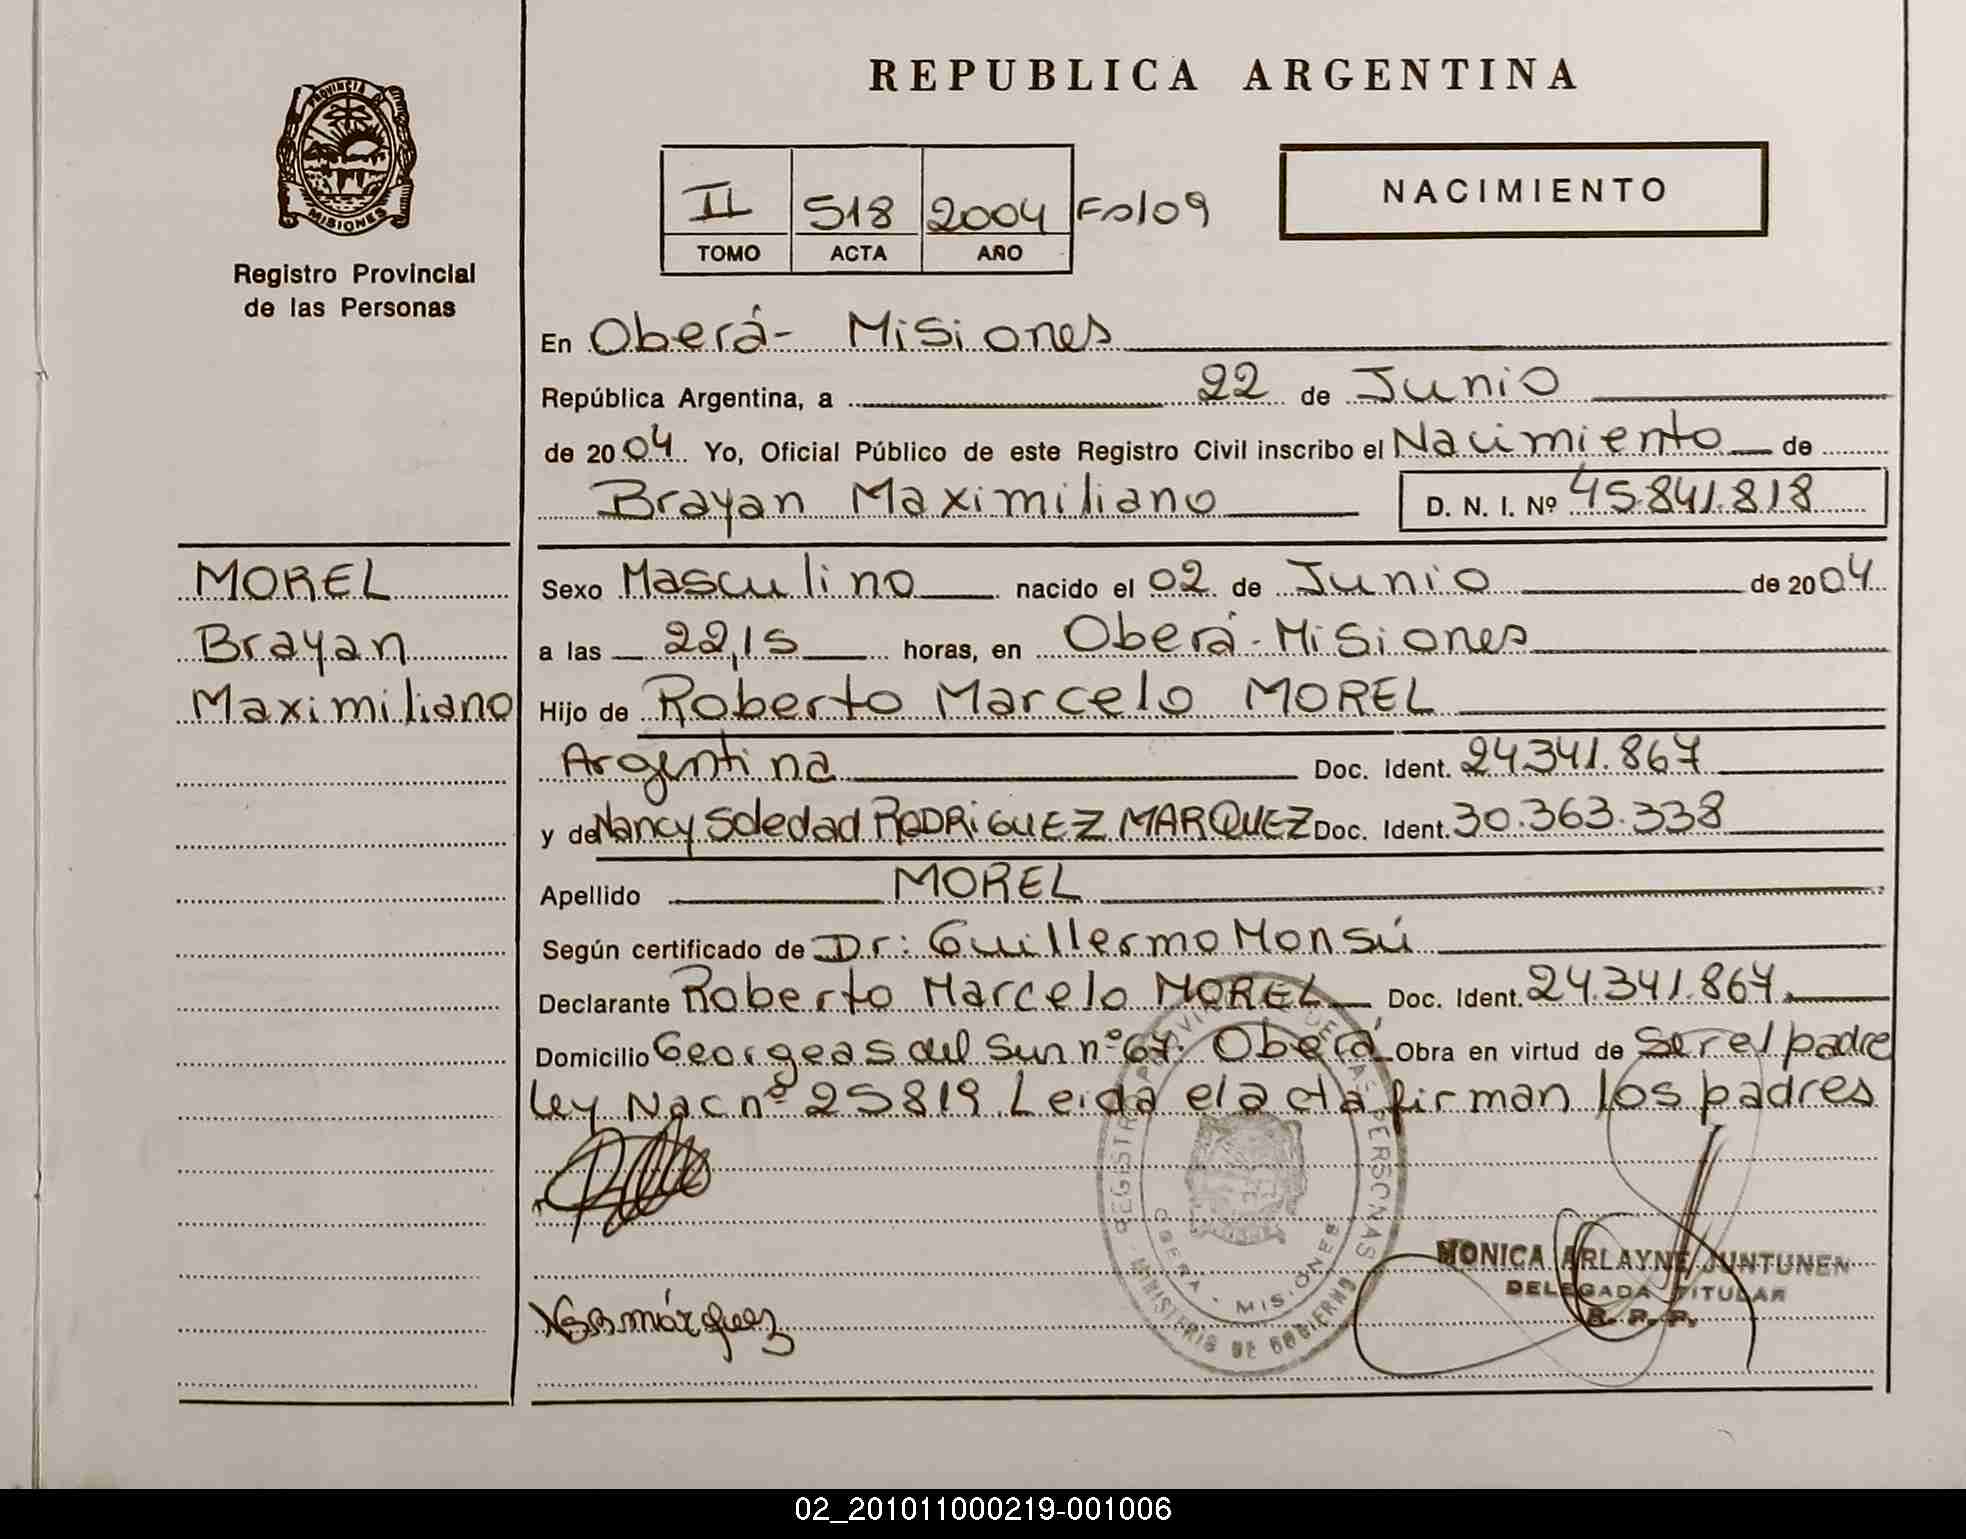 REPUBLICA ARGENTINA
PROVINCIA D
MISIONES
Registro Provincial
de las Personas
II 518 2004 Folo9
TOMO ACTA AÑO
NACIMIENTO
En Oberá- Misiones
República Argentina, a 22 de Junio
de 2004 Yo, Oficial Público de este Registro Civil inscribo el Nacimiento de
Brayan Maximiliano D. N. I. Nº 45.841.818
MOREL
Brayan
Maximiliano
Sexo Masculino nacido el 02 de Junio de 2004
a las 22,15 horas, en Oberá-Misiones
Hijo de Roberto Marcelo MOREL
Argentina Doc. Ident. 24.341.867
y de Nancy Soledad RODRiGUEZ MARQUEZ Doc. Ident. 30.363.338
Apellido MOREL
Según certificado de Dr: Guillermo Monsú
Declarante Roberto Marcelo MOREL Doc. Ident. 24.341.867
Domicilio Georgeas del Sun nº 67. Oberá Obra en virtud de Ser el padre
Ley Nac nº 25819. Leida el acta firman los padres
REGISTRO PROVINCIAL DE LAS PERSONAS
OBERA - MISIONES
MINISTERIO DE GOBIERNO
MONICA ARLAYNE JUNTUNEN
DELEGADA TITULAR
R. P. P.
márquez
02_201011000219-001006